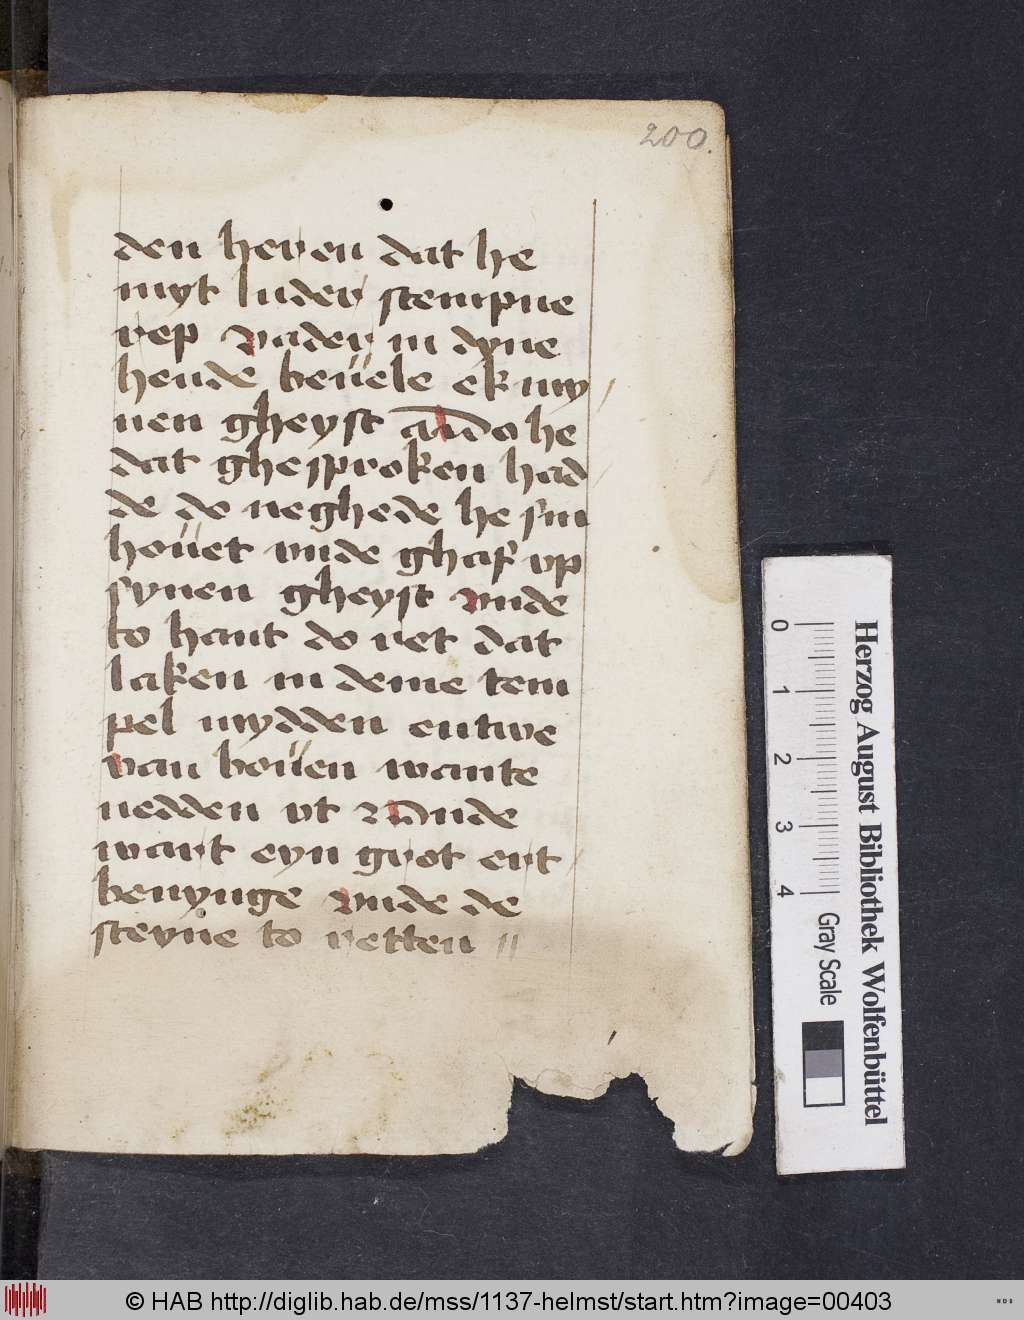 200.
den heren dat he
myt luder stempne
rep vader in dyne
hende beuele ek my
nen gheyst do he
dat ghesproken had
de do neghede he sin
houet vnde ghaf vp
synen gheyst vnde
to hant do ret dat
laken in deme tem
pel mydden entwe
van bouen wante
nedden vt Vnde
wart eyn grot ert
beuynge vnde de
steyne to retten //
0 1 2 3 4
Gray Scale
Herzog August Bibliothek Wolfenbüttel
© HAB http://diglib.hab.de/mss/1137-helmst/start.htm?image=00403